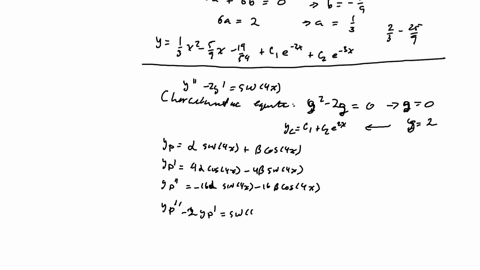 + 6b = 0 ⇒ b = -5/9
6a = 2 ⇒ a = 1/3
2/3 - 25/9
y = 1/3 x² - 5/9 x - 19/54 + C₁e^-2x + C₂e^-3x
y'' - 2y' = sin(4x)
equation: g² - 2g = 0 → g = 0
y_c = C₁ + C₂e^2x ← g = 2
y_p = α sin(4x) + β cos(4x)
y_p' = 4α cos(4x) - 4β sin(4x)
y_p'' = -16α sin(4x) - 16β cos(4x)
y_p'' - 2y_p' = sin(